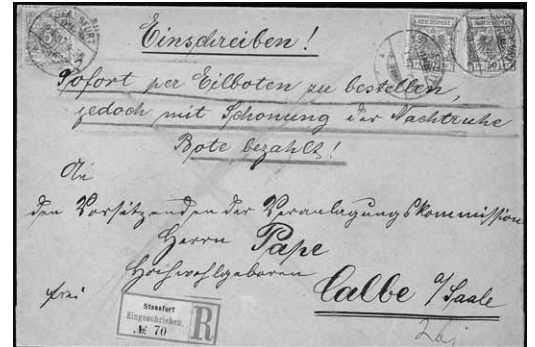 Einschreiben!
Sofort per Eilboten zu bestellen,
jedoch mit Schonung der Nachtruhe
Bote bezahlt!
An
den Vorsitzenden der Veranlagungskommission
Herrn Pape
Hochwohlgeboren
frei
Calbe a/Saale
Stassfurt
Eingeschrieben.
№ 70
R
REICHSPOST
REICHSPOST